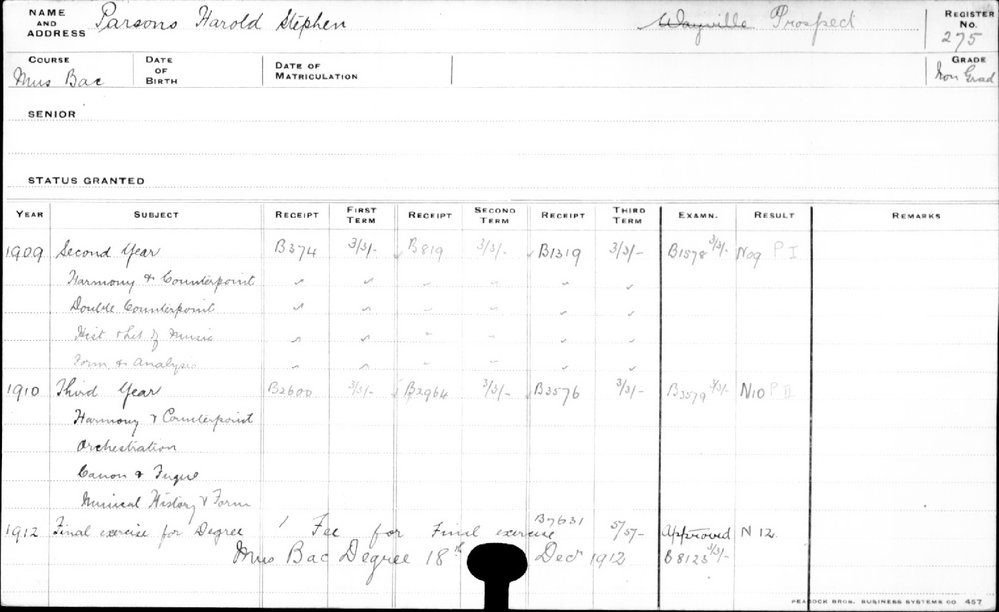 NAME AND ADDRESS Parsons Harold Stephen Wayville Prospect REGISTER No. 275
COURSE Mus Bac DATE OF BIRTH DATE OF MATRICULATION GRADE Non Grad
SENIOR
STATUS GRANTED
YEAR SUBJECT RECEIPT FIRST TERM RECEIPT SECOND TERM RECEIPT THIRD TERM EXAMN. RESULT REMARKS
1909 Second Year B374 3/3/- B819 3/3/- B1319 3/3/- B1578 3/3/- N09 P I
Harmony & Counterpoint
Double Counterpoint
Hist & Lit of Music
Form & Analysis
1910 Third Year B2600 3/3/- B2964 3/3/- B3576 3/3/- B3579 3/3/- N10 P II
Harmony & Counterpoint
Orchestration
Canon & Fugue
Musical History & Form
1912 Final exercise for Degree Fee for Final exercise B7631 5/5/- Approved N 12
Mus Bac Degree 18th Decr 1912 B8123 3/3/-
PEACOCK BROS. BUSINESS SYSTEMS CO. 457